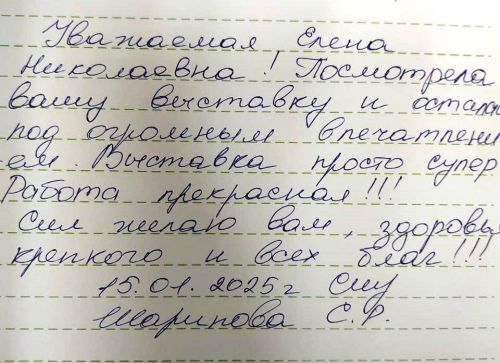 Уважаемая Елена
Николаевна! Посмотрела
вашу выставку и остала
под огромным впечатлени
ем. Выставка просто супер
Работа прекрасная!!!
Сил желаю вам, здоровья
крепкого и всех благ!!!
15.01.2025г
Шарипова С.Р.